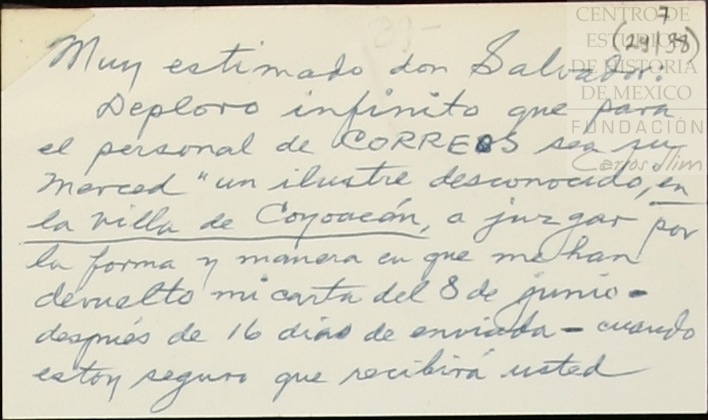 CENTRO DE
ESTUDIOS
DE HISTORIA
DE MEXICO
FUNDACIÓN
Carlos Slim
7
(29/38)
Muy estimado don Salvador:
Deploro infinito que para
el personal de CORREOS sea su
merced "un ilustre desconocido, en
la Villa de Coyoacán, a juzgar por
la forma y manera en que me han
devuelto mi carta del 8 de junio -
después de 16 dias de enviada - cuando
estoy seguro que recibirá usted